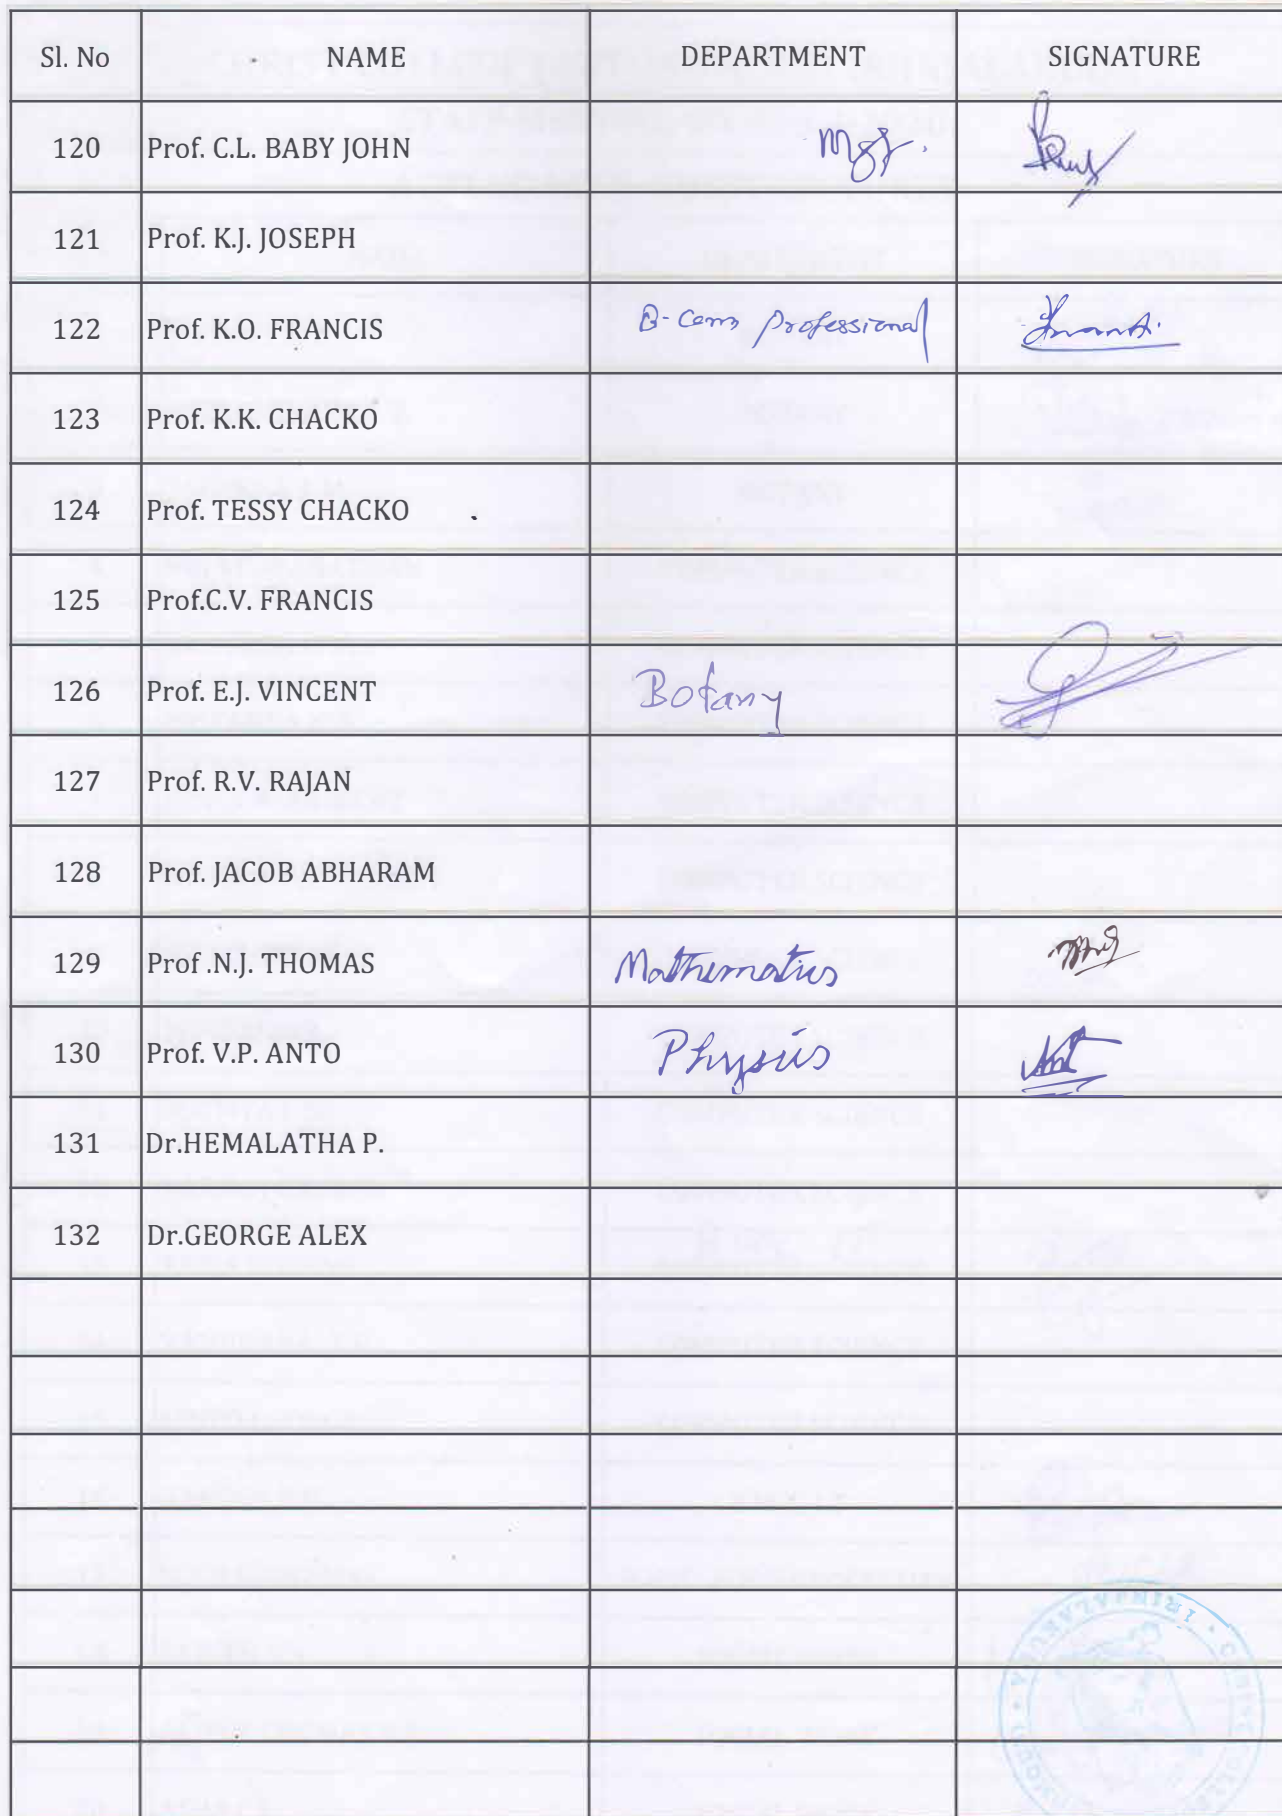 Sl. No NAME DEPARTMENT SIGNATURE
120 Prof. C.L. BABY JOHN
121 Prof. K.J. JOSEPH
122 Prof. K.O. FRANCIS B-Com Professional
123 Prof. K.K. CHACKO
124 Prof. TESSY CHACKO
125 Prof.C.V. FRANCIS
126 Prof. E.J. VINCENT Botany
127 Prof. R.V. RAJAN
128 Prof. JACOB ABHARAM
129 Prof .N.J. THOMAS Mathematics
130 Prof. V.P. ANTO Physics
131 Dr.HEMALATHA P.
132 Dr.GEORGE ALEX